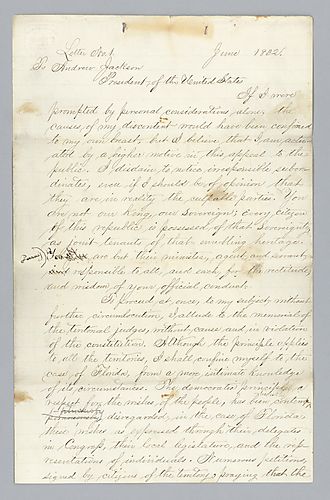 Letter No. 1 June 1832.
To Andrew Jackson
President of the United States
If I were
prompted by personal considerations alone, the
causes of my discontent would have been confined
to my own breast; but I believe that I am actu
ated by a higher motive in this appeal to the
public. I disdain to notice irresponsible subor-
dinates, even if I should be of opinion that
they are in reality the culpable parties. You
are not our King, our Sovereign; every citizen
of this republic is possessed of that Sovereignty
as joint tenants of that ennobling heritage.
are but their minister, agent and servant
and responsible to all, and each, for the rectitude
and wisdom of your official conduct.
To proceed at once to my subject without
further circumlocution, I allude to the removal of
the territorial judges, without cause and in violation
of the constitution. Although the principle applies
to all the territories, I shall confine myself to the
case of Florida, from a more intimate knowledge
of its circumstances. The democratic principle, a
respect for the wishes of the people, has been
disregarded, in the case of Florida
these wishes as expressed through their delegates
in Congress, their local legislature, and the rep
resentations of individuals. Numerous petitions,
signed by citizens of the territory, praying that the